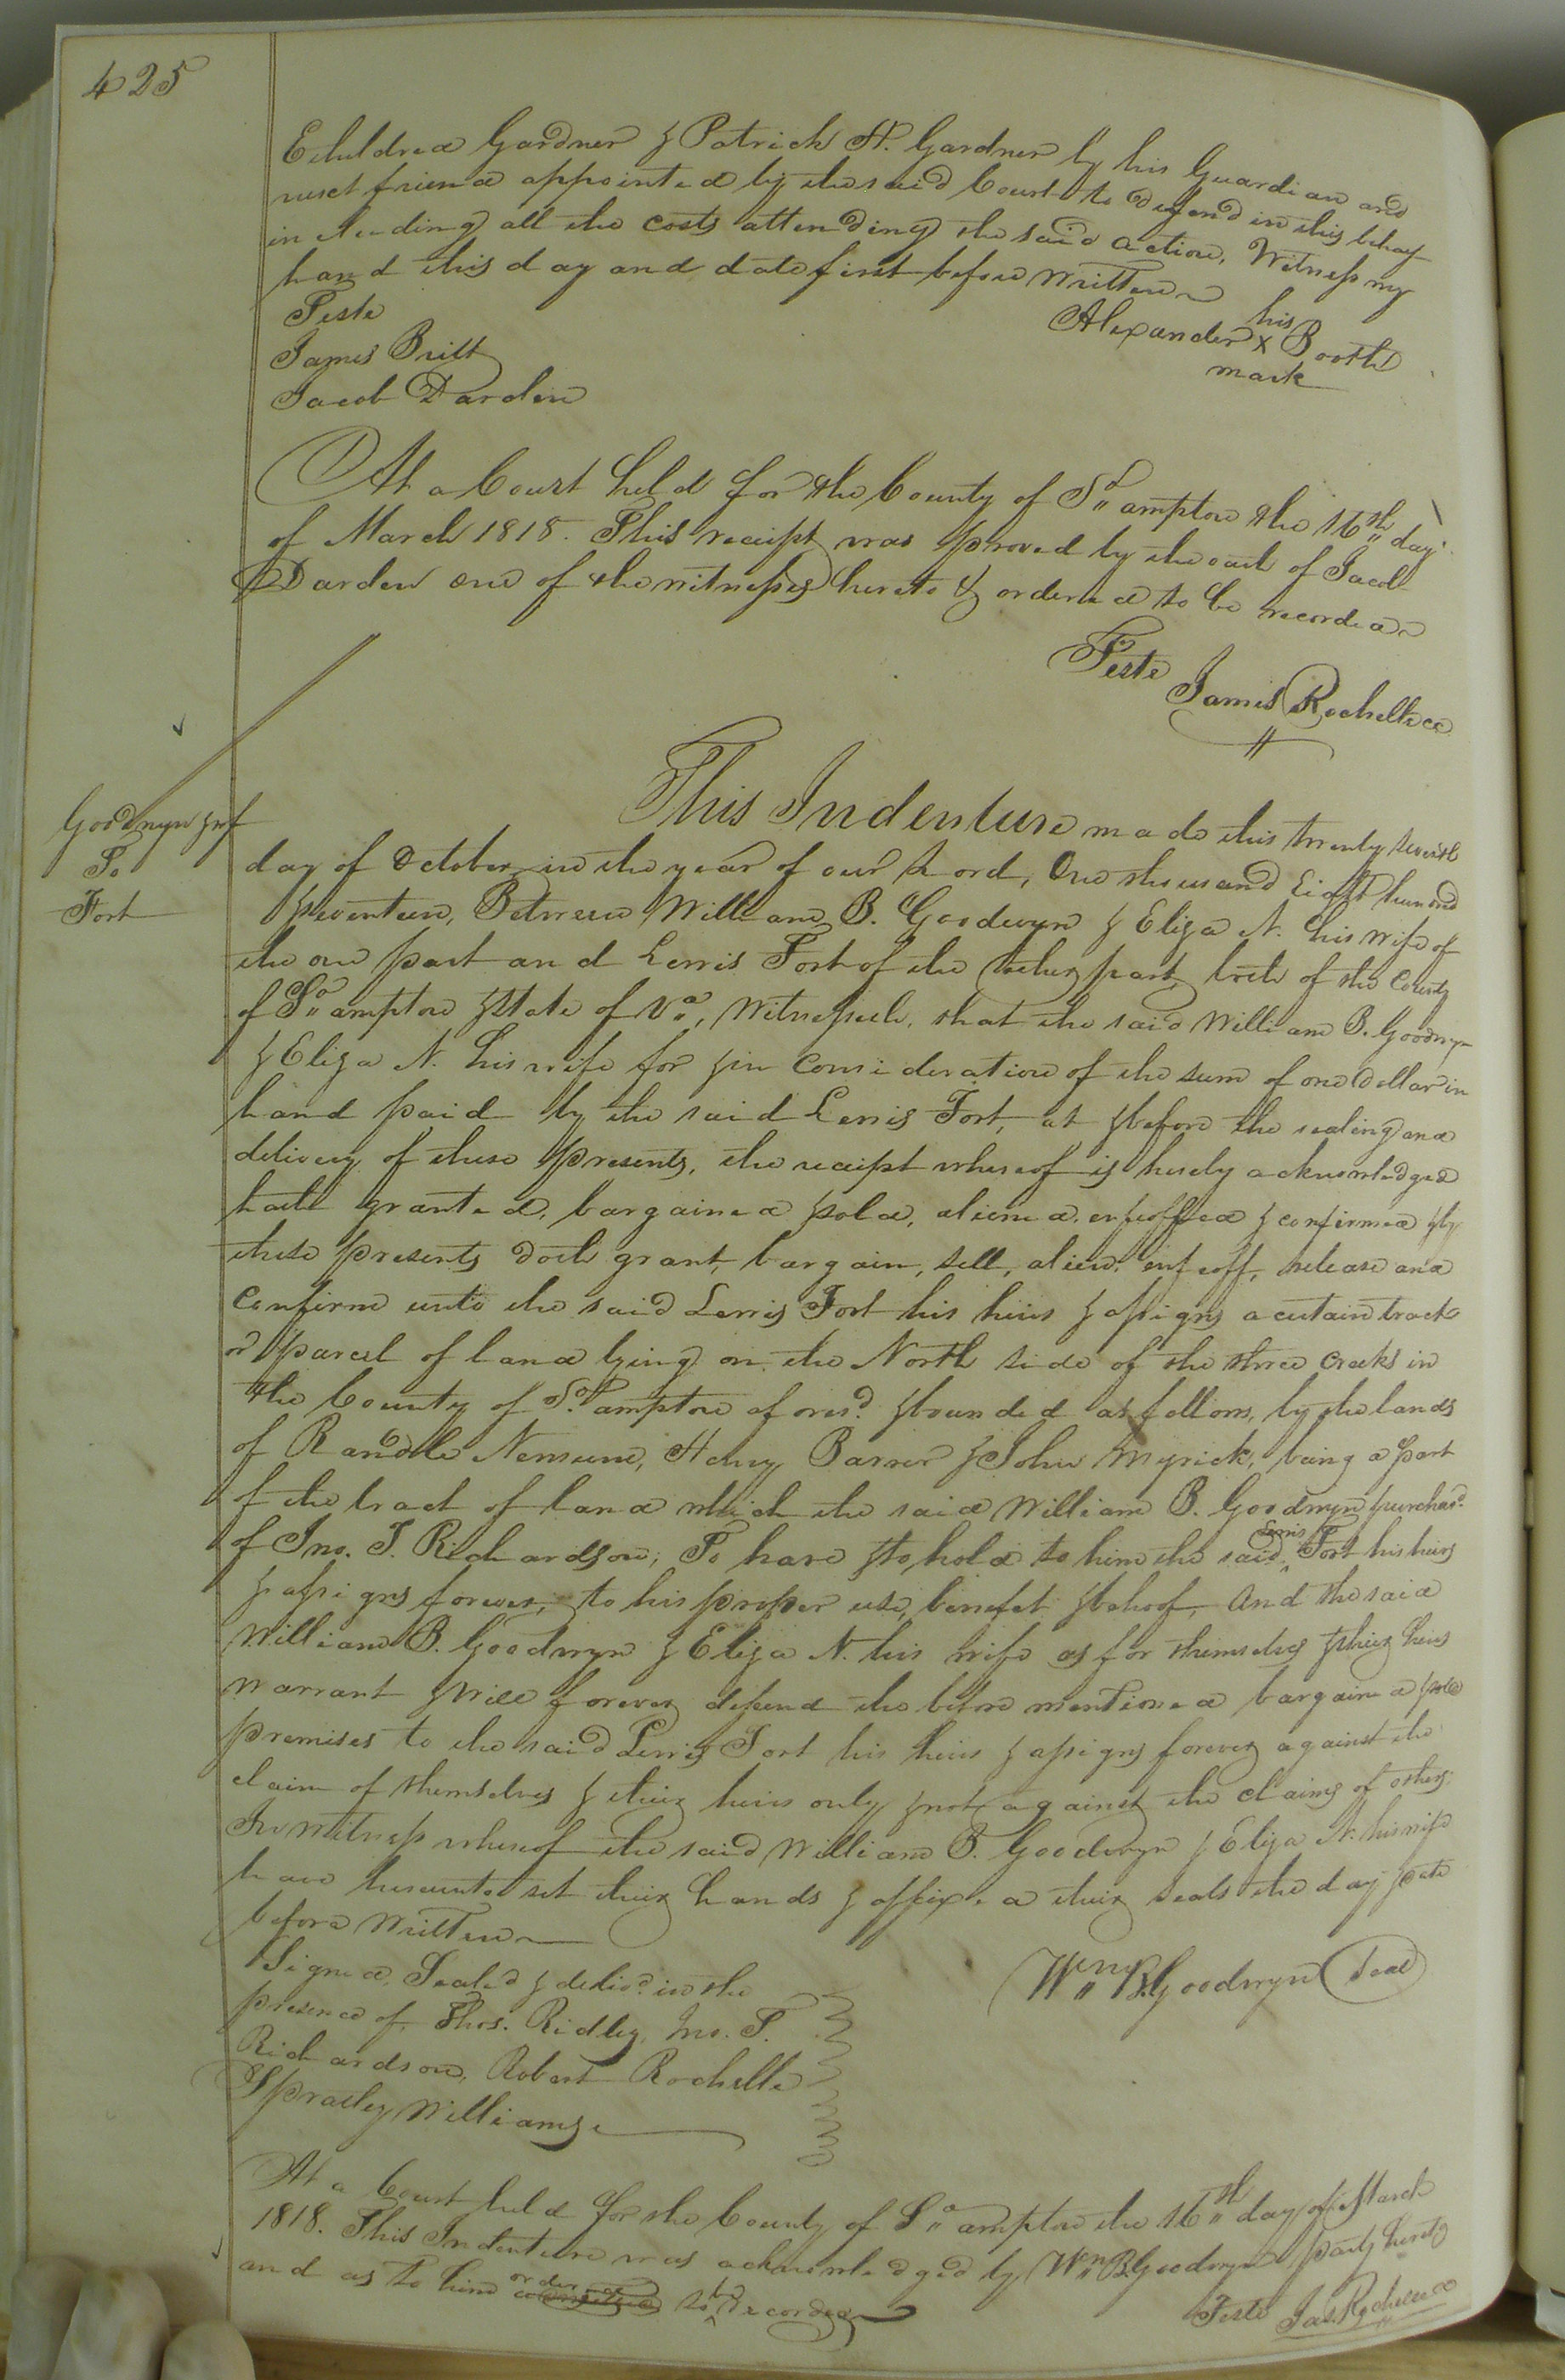 425
Etheldred Gardner & Patrick H. Gardner by his Guardian and
next friend appointed by the said Court to defend in this behalf
including all the costs attending the said action, Witness my
hand this day and date first before written
Teste
James Britt
Jacob Darden
his
Alexander X Booth
mark
At a Court held for the County of So,,ampton the 16th,, day
of March 1818. This receipt was proved by the oath of Jacob
Darden one of the witnesses hereto & ordered to be recorded
Teste
James Rochelle cc
Goodwyn & wf
To
Fort
This Indenture made this twenty seventh
day of October in the year of our Lord, One thousand Eight hundred
& seventeen, Between William B. Goodwyn & Eliza N. his wife of
the one part and Lewis Fort of the other part, both of the County
of So,,ampton & State of Va,,, Witnesseth, that the said William B. Goodwyn
& Eliza N. his wife for & in consideration of the sum of one dollar in
hand paid by the said Lewis Fort, at & before the sealing and
delivery of these presents, the receipt whereof is hereby acknowledged
hath granted, bargained & sold, aliened, enfeoffed & confirmed & by
these presents doth grant, bargain, sell, alien, enfeoff, release and
confirm unto the said Lewis Fort his heirs & assigns a certain tract
or parcel of land lying on the North side of the three creeks in
the County of So.ampton aforesd. & bounded as follows, by the lands
of Randle Newsum, Henry Barrow & John Myrick, being a part
of the tract of land which the said William B. Goodwyn purchasd.
of Jno. T. Richardson; To have & to hold to him the said Lewis Fort his heirs
& assigns forever, to his proper use, benefit & behoof, And the said
William B. Goodwyn & Eliza N. his wife as for themselves & their heirs
warrant & will forever defend the before mentioned bargained & sold
premises to the said Lewis Fort his heirs & assigns forever against the
claim of themselves & their heirs only & not against the claims of others.
In witness whereof the said William B. Goodwyn & Eliza N. his wife
have hereunto set their hands & affixed their seals the day & date
before written
Signed, Sealed & delivd. in the
presence of, Thos. Ridley, Jno. T.
Richardson, Robert Rochelle
Spratley Williams
Wm,, B. Goodwyn Seal
At a Court held for the County of So,,ampton the 16th,, day of March
1818. This Indenture was acknowledged by Wm,, B. Goodwyn party hereto
and as to him ordered to be recorded
Teste Jas. Rochelle cc